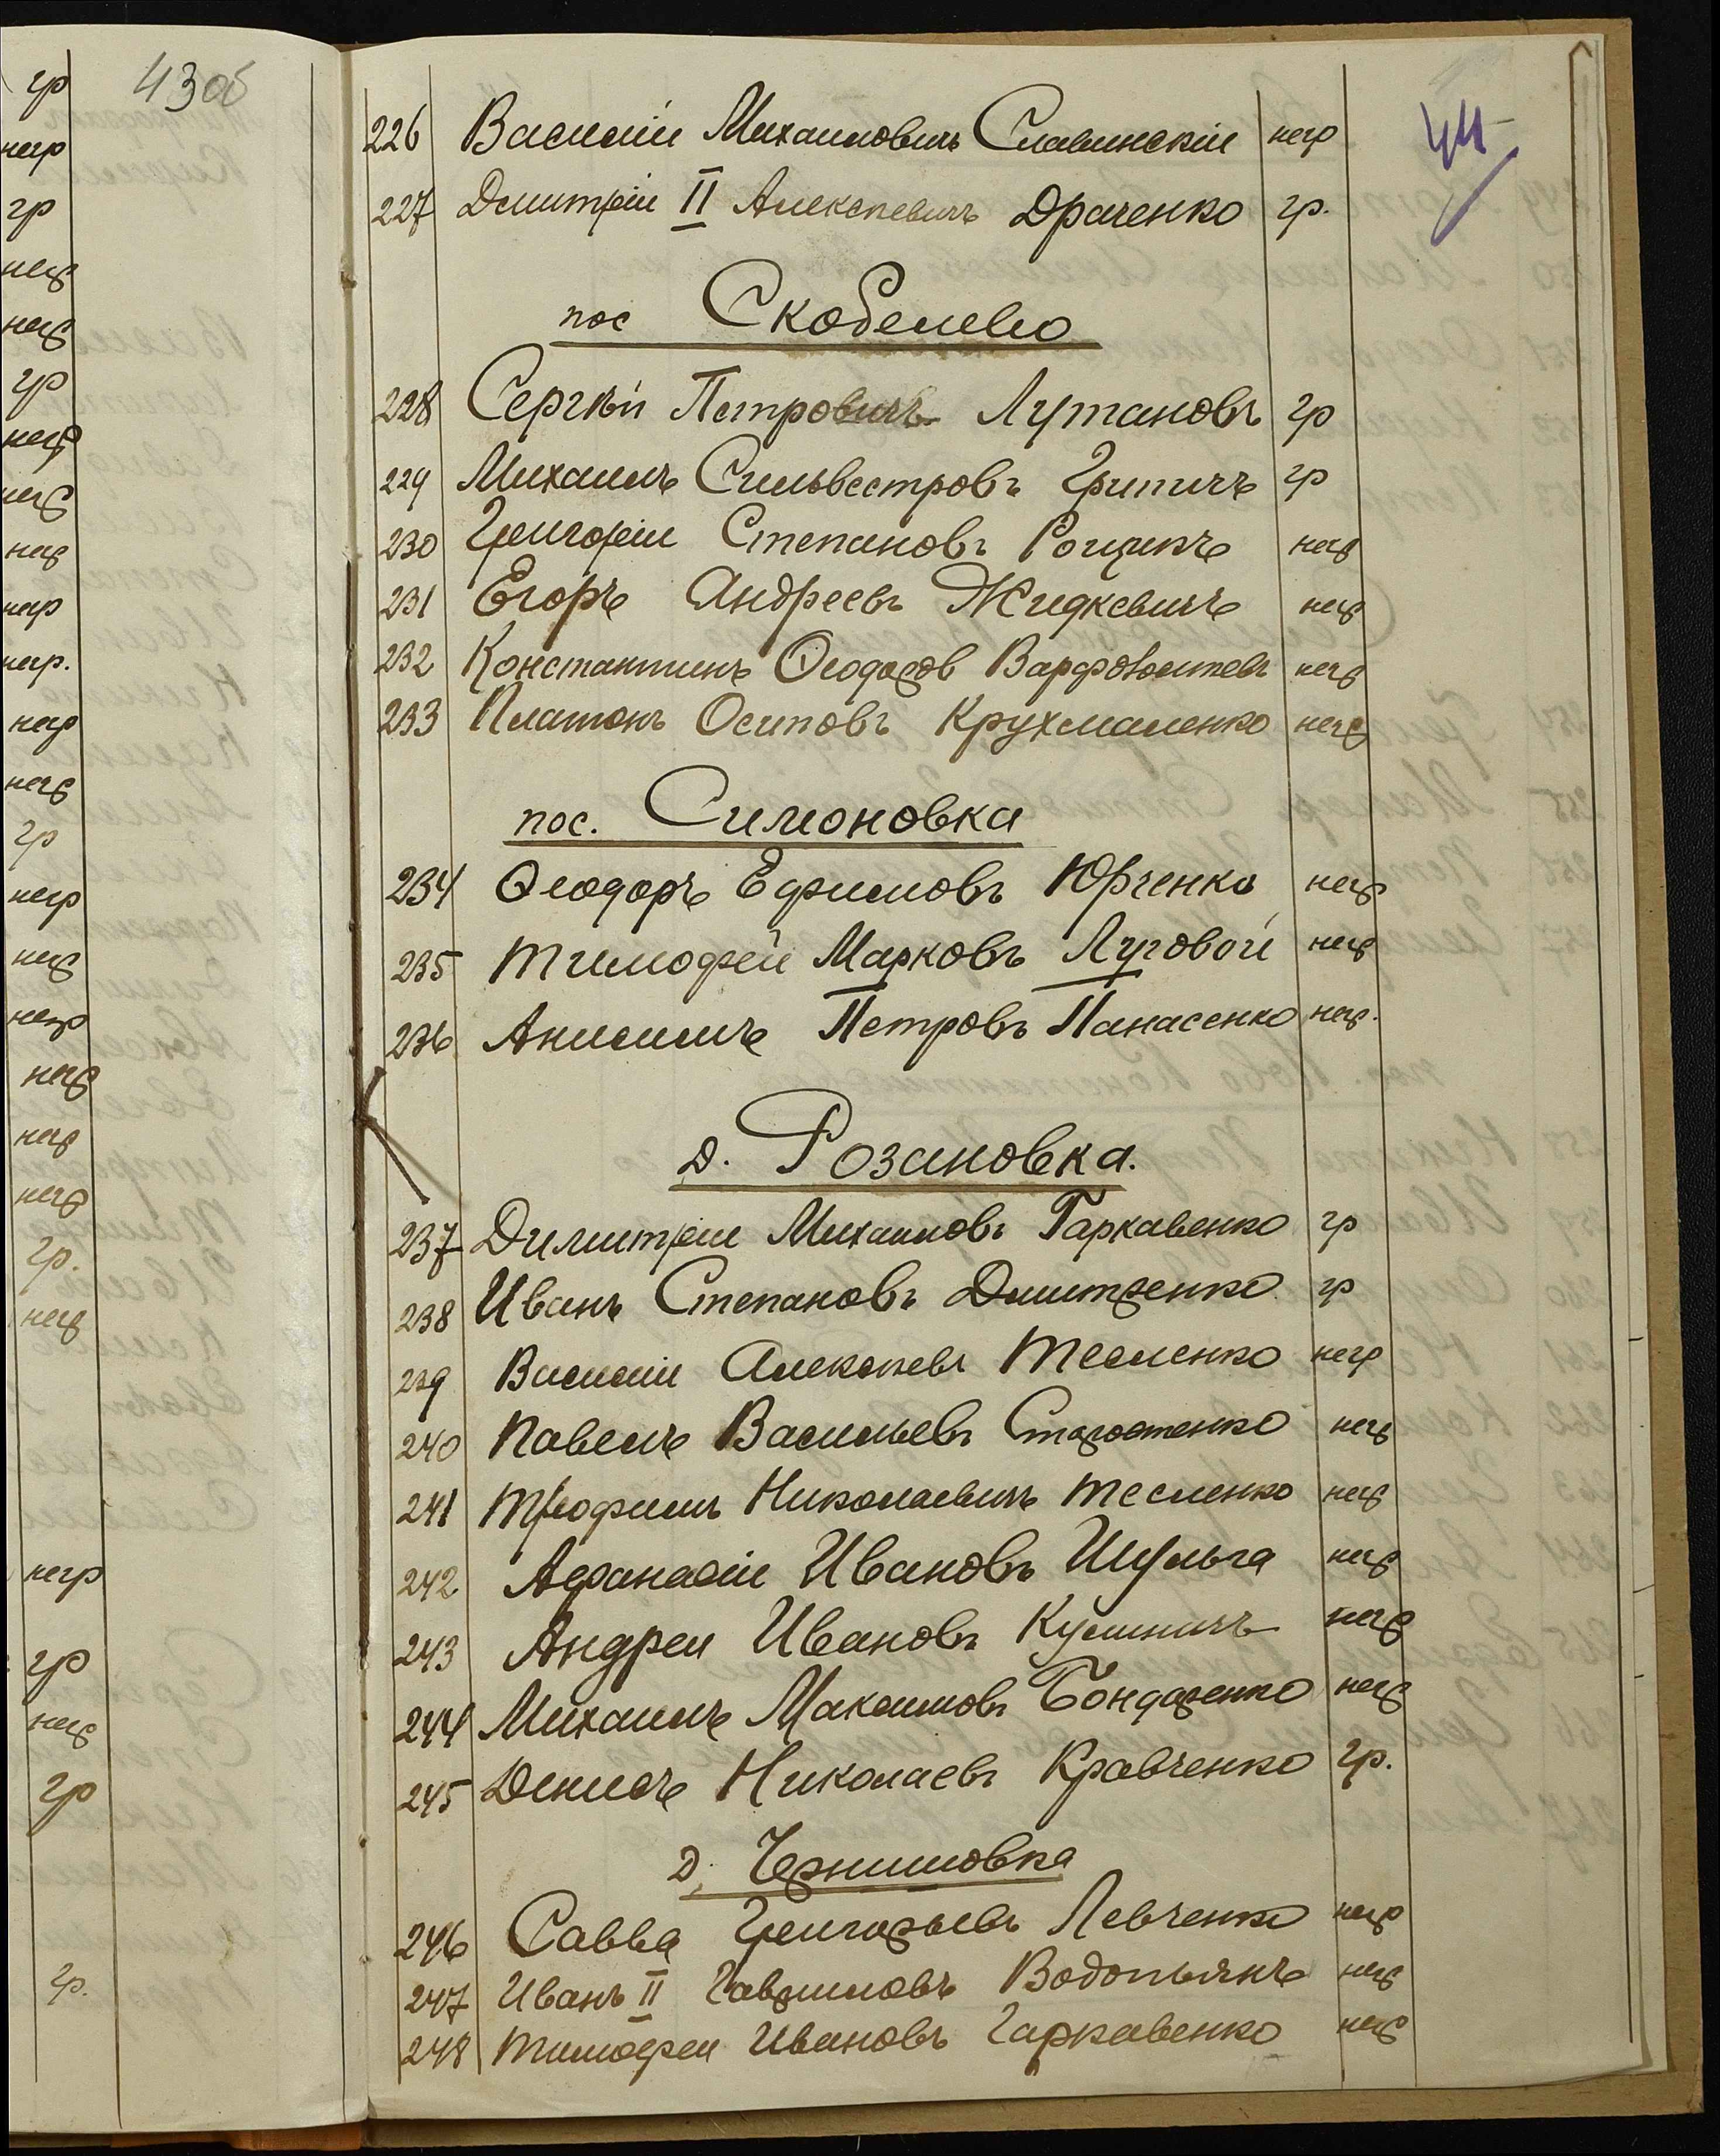 гр
негр
гр
негр
негр
гр
негр
негр
негр
негр
негр.
негр
негр
гр
негр
негр
негр
негр
негр
негр
гр.
негр
негр
гр
негр
гр
гр.
43 об
44
226 Василій Михаиловичъ Славинскій негр
227 Дмитрій II Алексѣевичъ Драченко гр.
пос Скобелево
228 Сергѣй Петровичъ Лутановъ гр
229 Михаилъ Сильвестровъ Грипичъ гр
230 Григорій Степановъ Рощикъ негр
231 Егоръ Андреевъ Жидкевичъ негр
232 Константинъ Ѳеодоров Варфоломеевъ негр
233 Платонъ Осиповъ Крухмаленко негр
пос. Симоновка
234 Ѳеодоръ Ефимовъ Юрченко негр
235 Тимофей Марковъ Луговой негр
236 Анисимъ Петровъ Панасенко негр.
д. Розановка.
237 Димитрій Михаиловъ Гаркавенко гр
238 Иванъ Степановъ Дмитренко гр
239 Василій Алексѣевъ Тесленко негр
240 Павелъ Васильевъ Старостенко негр
241 Трофимъ Николаевичъ Тесленко негр
242 Афанасій Ивановъ Шульга негр
243 Андреи Ивановъ Кушниръ негр
244 Михаилъ Максимовъ Бондаренко негр
245 Денисъ Николаевъ Кравченко гр.
д. Чернышовка
246 Савва Григорьевъ Левченко негр
247 Иванъ II Гавриловъ Водопьянъ негр
248 Тимофеи Ивановъ Гаркавенко негр